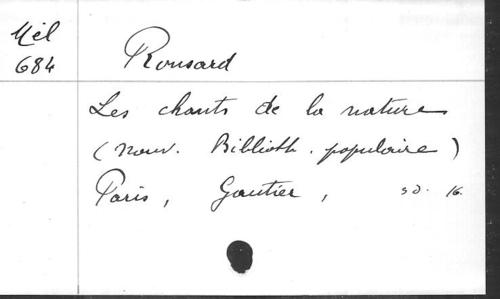 Mél
684
Ronsard
Les chants de la nature
(nouv. Biblioth. populaire)
Paris, Gautier, s.d. 16